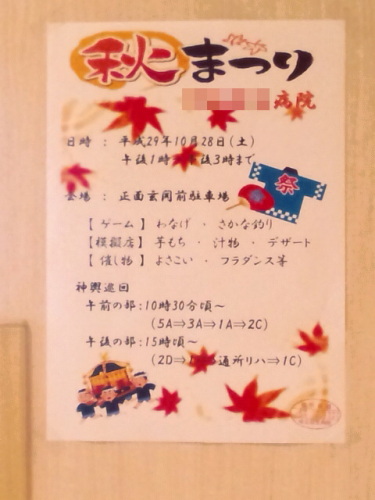 秋まつり
病院
日時 : 平成29年10月28日(土)
午後1時 後3時まで
会場 : 正面玄関前駐車場
祭
【ゲーム】 わなげ ・ さかな釣り
【模擬店】 芋もち ・ 汁物 ・ デザート
【催し物】 よさこい ・ フラダンス等
神輿巡回
午前の部:10時30分頃~
(5A⇒3A⇒1A⇒2C)
午後の部:15時頃~
(2D⇒ 通所リハ⇒1C)